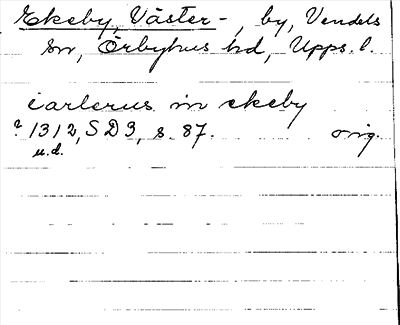 Ekeby, Väster-, by, Vendels
sn, Örbyhus hd, Upps. l.
iarlerus in ekeby
? 1312, SD 3, s. 87. orig.
u.d.